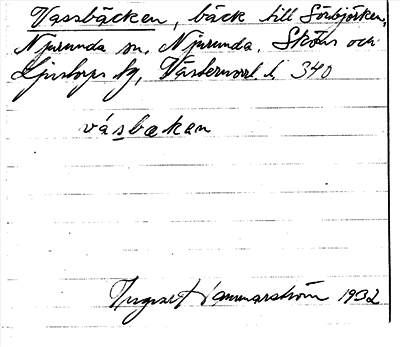 Vassbäcken, bäck till Sörbjörken,
Njurunda sn, Njurunda, Sköns och
Ljustorps tg, Västernorrl. l. 340
väsbaken
Ingvar Hammarström 1932